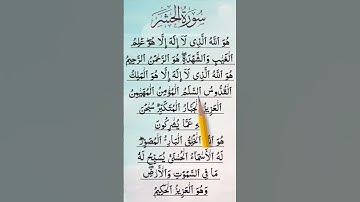 سُورَةُ الْحَشْرِ
هُوَ اللّٰهُ الَّذِي لَآ إِلٰهَ إِلَّا هُوَ ۚ عٰلِمُ
الْغَيْبِ وَالشَّهٰدَةِ ۖ هُوَ الرَّحْمٰنُ الرَّحِيمُ
هُوَ اللّٰهُ الَّذِي لَآ إِلٰهَ إِلَّا هُوَ ۚ الْمَلِكُ
الْقُدُّوسُ السَّلٰمُ الْمُؤْمِنُ الْمُهَيْمِنُ
الْعَزِيزُ الْجَبَّارُ الْمُتَكَبِّرُ ۚ سُبْحٰنَ
عَمَّا يُشْرِكُونَ
هُوَ اللّٰهُ الْخٰلِقُ الْبَارِئُ الْمُصَوِّرُ ۖ
لَهُ الْأَسْمَآءُ الْحُسْنٰى ۚ يُسَبِّحُ لَهُ
مَا فِي السَّمٰوٰتِ وَالْأَرْضِ ۖ
وَهُوَ الْعَزِيزُ الْحَكِيمُ